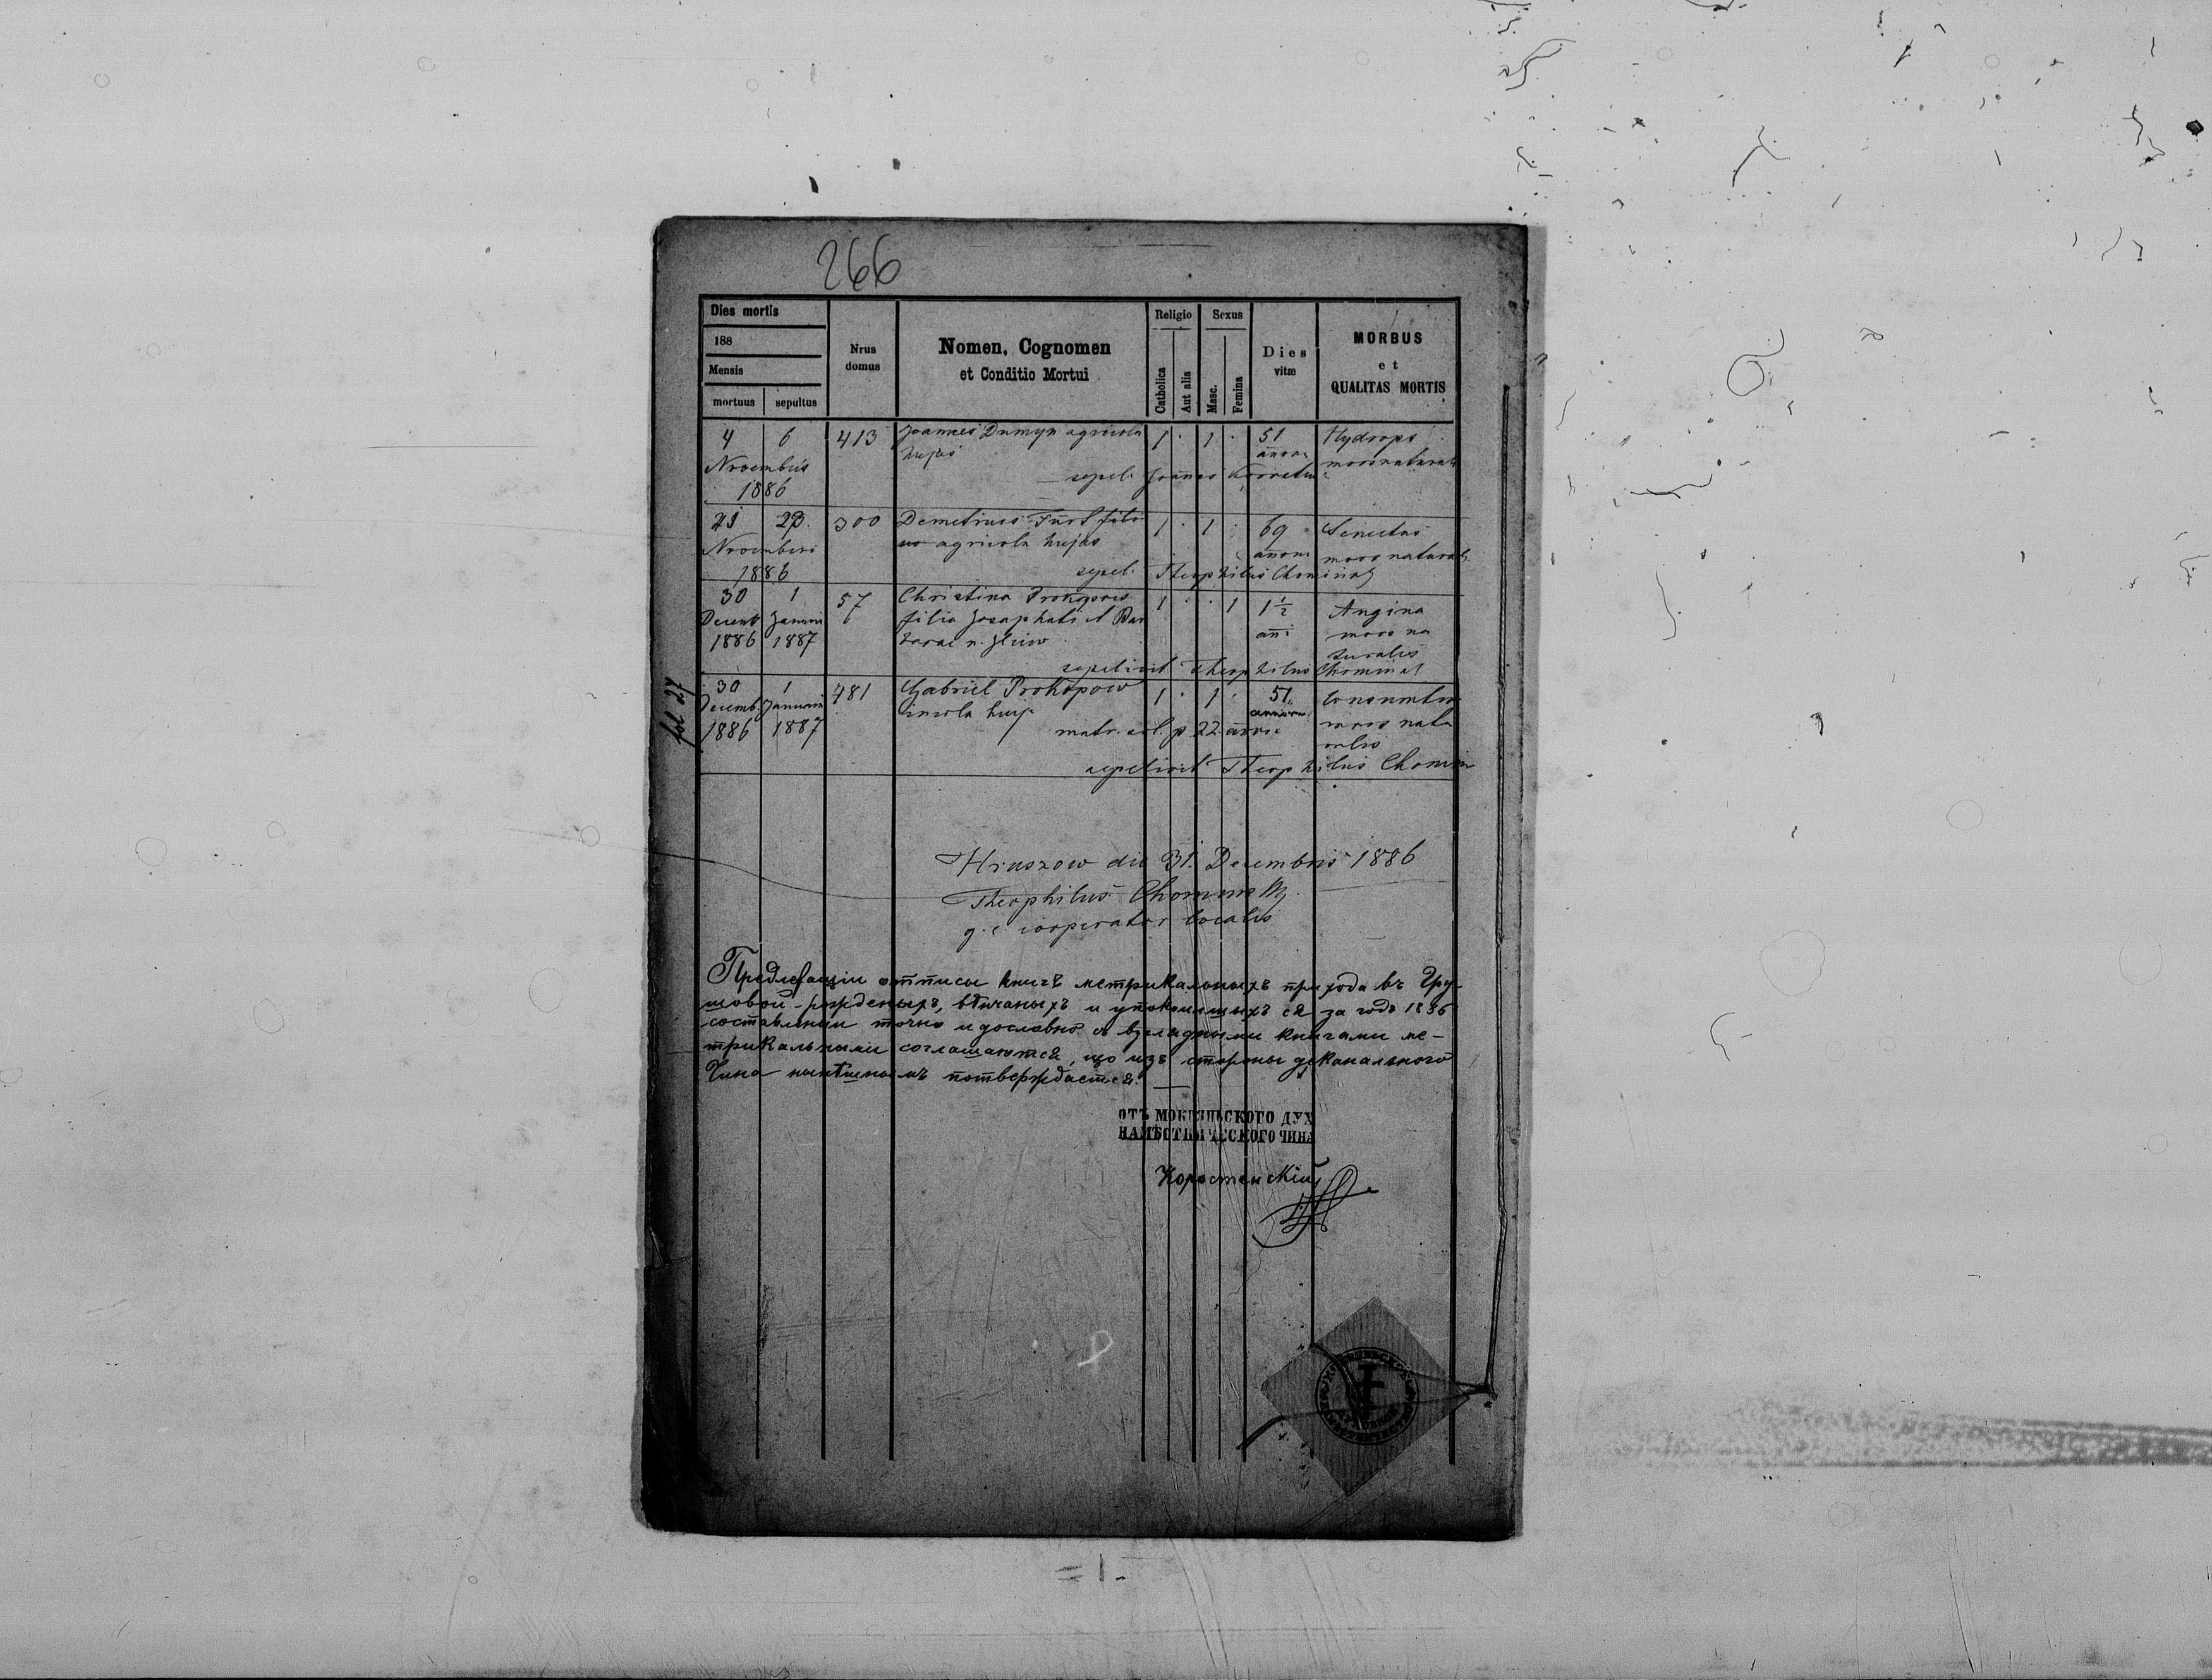 266
Dies mortis
188
Mensis
mortuus sepultus
Nrus
domus
Nomen, Cognomen
et Conditio Mortui
Religio
Catholica
Aut alia
Sexus
Masc.
Femina
Dies
vitæ
MORBUS
et
QUALITAS MORTIS
4 6 413 Joannes Dumyn agricola 1 · 1 · 51 Hydrops
Novembris hujas annor mors natural
1886 sepel. Joannes
21 23. 300 Demetrius filo 1 · 1 · 69 Senectus
Novembris agricola hujas annor mors natural
1886 sepel. Theophilus Chominski
30 1 57 Christina Prokopow 1 · · 1 1½ Angina
Decemb Januari filia Josaphati et Bar anni mors na
1886 1887 barae n. turalis
sepelivit Theophilus Chominsk
fol 27
30 1 481 Gabriel Prokopow 1 · 1 · 51
Decemb. Januarii incola huj annorum
1886 1887 matr. p. 22 annis mors natu
ralis
sepelivit Theophilus Chomin
Hruszow die 31. Decembris 1886
Theophilus
g. c. cooperator localis
отписы книгъ метрикальныхъ прихода въ Гру-
шовой - рожденыхъ, вѣнчаныхъ и упокоившыхъ ся за годъ 1886
составленіи точно и дословно съ взглядными книгами ме-
трикальными соглашаются, що изъ стороны деканального
Чина нынѣшнымъ потверждается. —
ОТЪ МОКРЯНЬСКОГО ДУХ
НАМѢСТНИЧЕСКОГО ЧИНА
Коростенскій
= 1 -